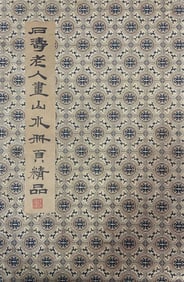 石壽老人畫山水冊頁精品